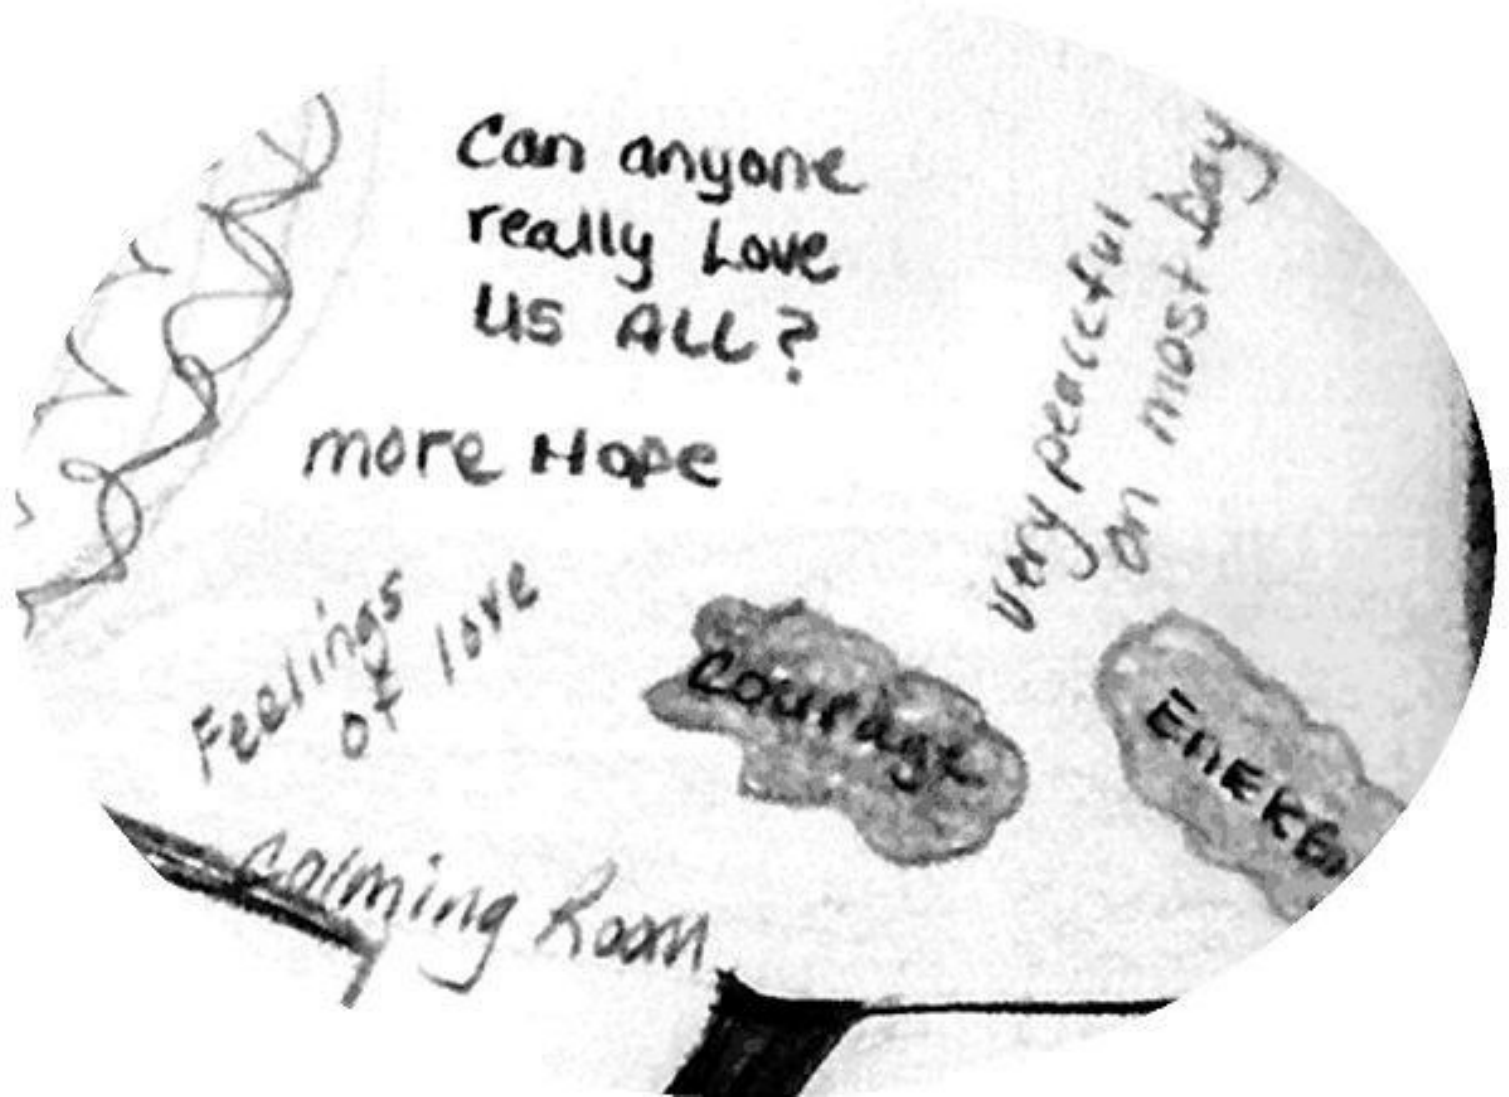 Can anyone
really Love
us ALL?
more Hope
very peaceful
on most Day
Feelings
of love
courage
Calming Room